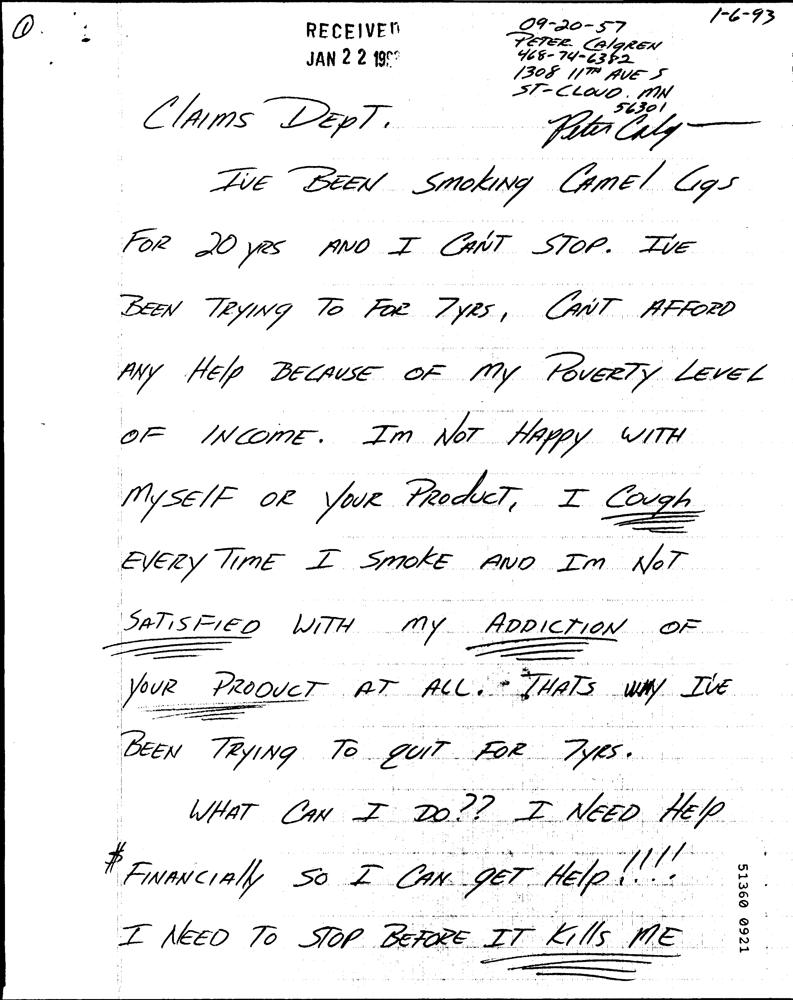 ①
1-6-93
RECEIVED
JAN 22 199
09-20-57
PETER CAlgREN
468-74-6382
1308 11TH AVE S
ST-CLOUD. MN
56301
Peter Calg
ClAIMS DEPT.
I'VE BEEN SMOKING CAMEl CigS
FOR 20 yRS AND I CAN'T STOP. I'VE
BEEN TRYING TO FOR 7yRS, CAN'T AFFORD
ANY HElp BECAUSE OF MY POVERTY LEVEL
OF INCOME. Im NOT HAppy WITH
MYSElF OR YOUR PRODUCT, I COUgh
EVERY TIME I SMOKE AND Im NOT
SATISFIED WITH MY ADDICTION OF
YOUR PRODUCT AT ALL. THATS WHY I'VE
BEEN TRYING TO QUIT FOR 7yRS.
WHAT CAN I DO?? I NEED HElp
$ FINANCIAlly SO I CAN GET HElp!!!!
I NEED TO STOP BEFORE IT KillS ME
51360 0921